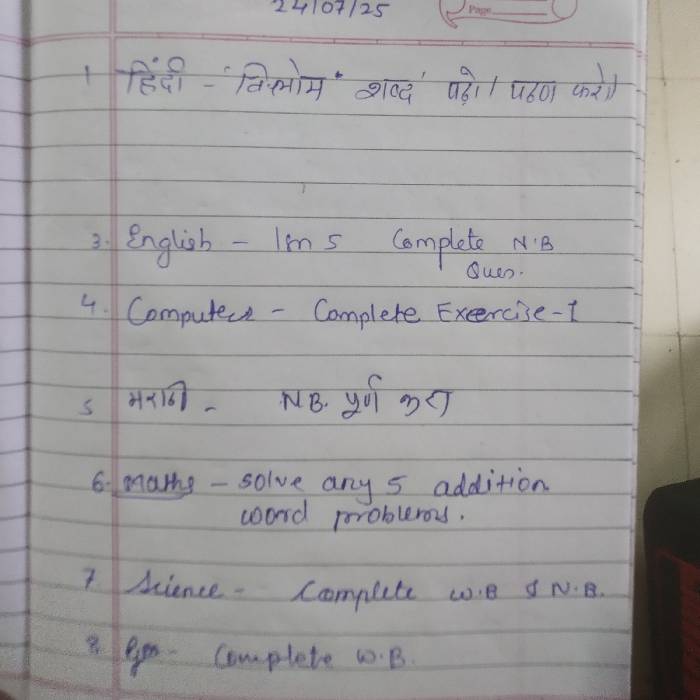 24/07/25
Page
1 हिंदी - 'विलोम' शब्द पढ़ो। पठण करो।
3. English - Im 5 Complete N.B
Ques.
4. Computer - Complete Exercise-1
5 मराठी - N.B. पूर्ण करा
6. Maths - solve any 5 addition
word problems.
7. Science - Complete W.B & N.B.
8. Complete W.B.